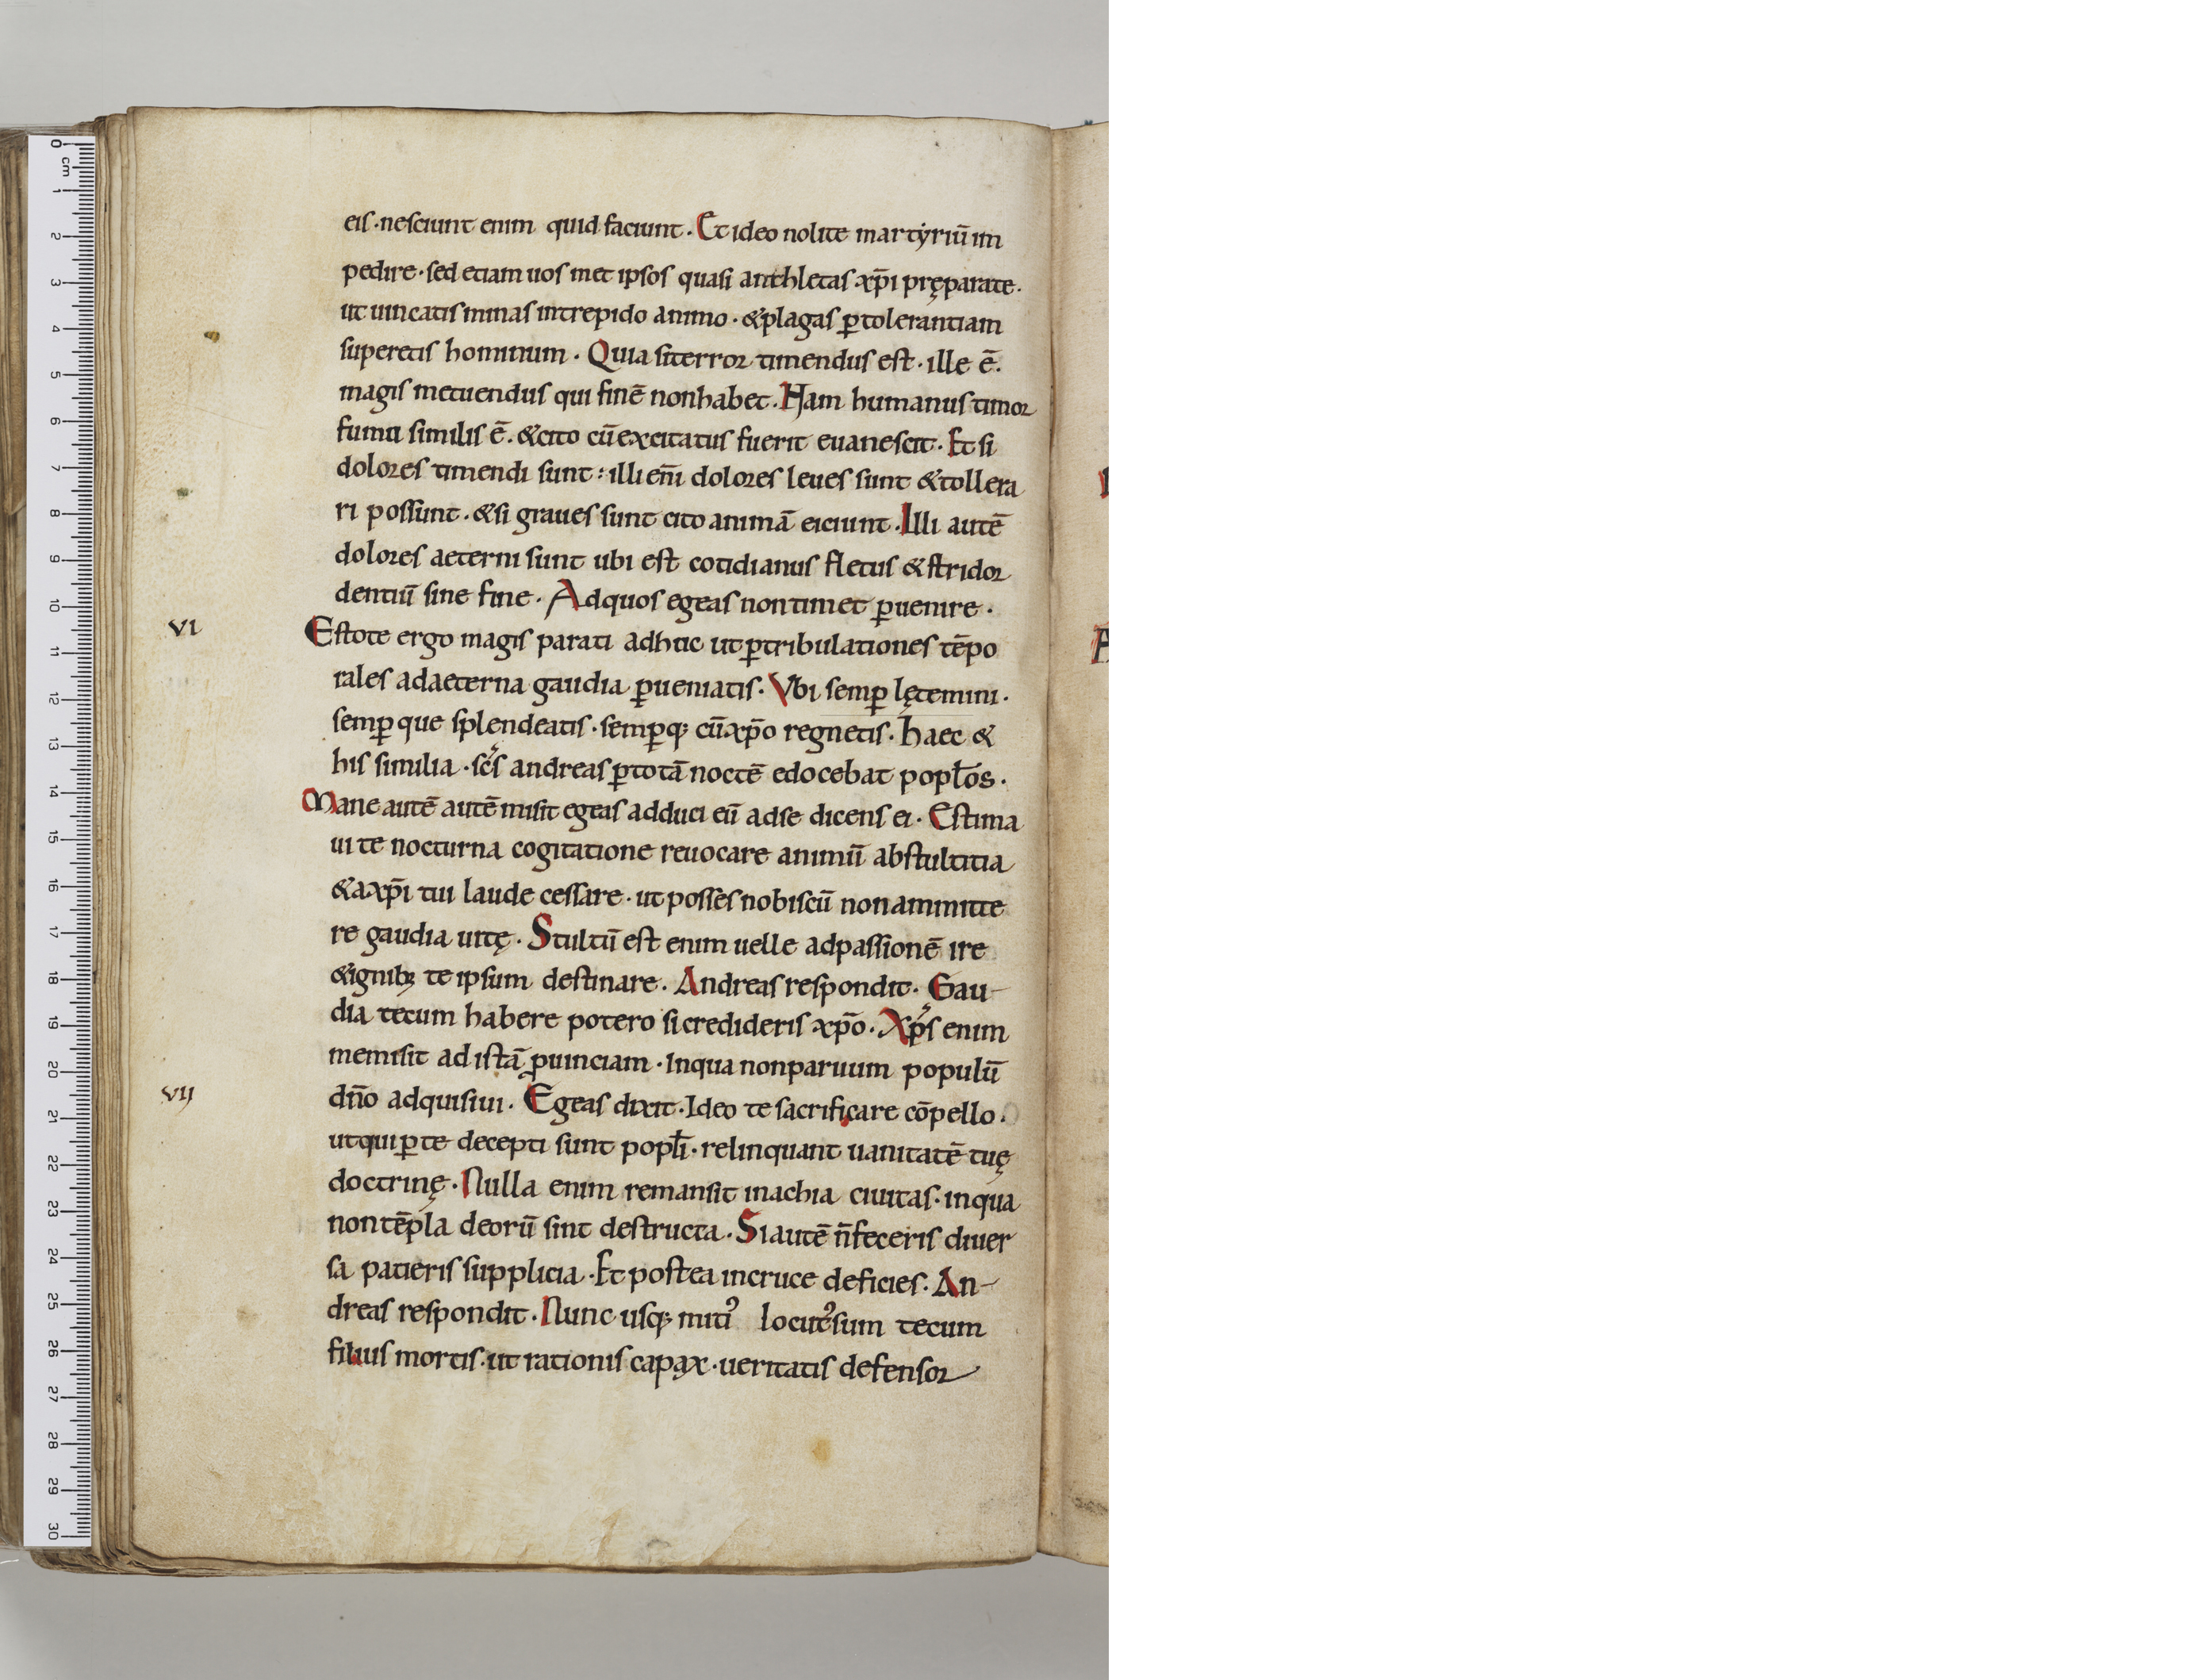 eis · nesciunt enim quid faciunt · Et ideo nolite martyriū im
pedire · sed etiam uos met ipsos quasi anthletas xp̄i pręparate ·
ut uincatis minas intrepido animo · & plagas ꝑ tolerantiam
superetis hominum · Quia si terror timendus est · ille ē ·
magis metuendus qui finē non habet · Nam humanus timor
fumu similis ē · & cito cū excitatus fuerit euanescit · Et si
dolores timendi sunt : illi en̄i dolores leues sunt & tollera
ri possunt · & si graues sunt cito animā eiciunt · Illi autē
dolores aeterni sunt ubi est cotidianus fletus & stridor
dentiū sine fine · Ad quos egeas non timet ꝑuenire ·
VI
Estote ergo magis parati adhuc ut ꝑ tribulationes tēpo
rales ad aeterna gaudia ꝑueniatis · Vbi semꝑ lętemini ·
semꝑ que splendeatis · semꝑq; cū xp̄o regnetis · haec &
his similia · sc̄s andreas ꝑ totā noctē edocebat popl̄os ·
Mane autē autē misit egeas adduci eū ad se dicens ei · Estima
ui te nocturna cogitatione reuocare animū ab stultitia
& a xp̄i tui laude cessare · ut posses nobiscū non ammitte
re gaudia uitę · Stultū est enim uelle ad passionē ire
& ignibꝫ te ipsum destinare · Andreas respondit · Gau-
dia tecum habere potero si credideris xp̄o · Xp̄s enim
me misit ad istā ꝓuinciam · in qua non paruum populū
VIJ
dn̄o adquisiui · Egeas dixit · Ideo te sacrificare cōpello ·
ut qui ꝑ te decepti sunt popl̄i · relinquant uanitatē tuę
doctrinę · Nulla enim remansit in achia ciuitas · in qua
non tēpla deorū sint destructa · Si autē n̄ feceris diuer
sa patieris supplicia · Et postea in cruce deficies · An-
dreas respondit · Nunc usq; mitiꝰ locutꝰ sum tecum
filius mortis · ut rationis capax · ueritatis defensor